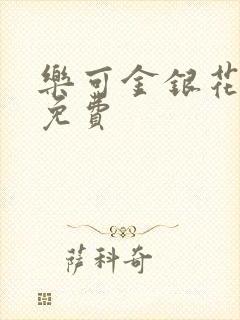 樂可金銀花
免費
薩科奇